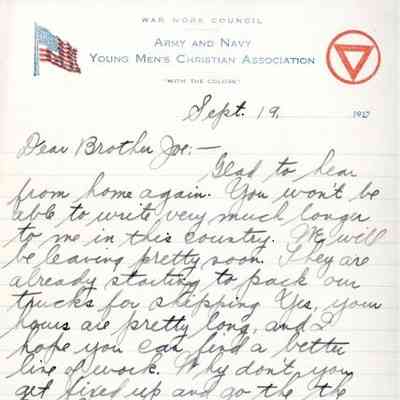 WAR WORK COUNCIL
ARMY AND NAVY
YOUNG MEN'S CHRISTIAN ASSOCIATION
"WITH THE COLORS"
Sept. 19. 1917
Dear Brother Joe:—
Glad to hear
from home again. You won't be
able to write very much longer
to me in this country. We will
be leaving pretty soon. They are
already starting to pack our
trucks for shipping. Yes, your
hours are pretty long, and I
hope you can find a better
line of work. Why don't you
get fixed up and go the the